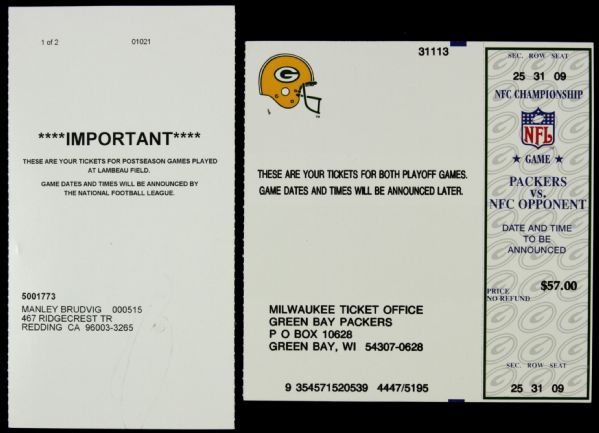 1 of 2 01021
****IMPORTANT****
THESE ARE YOUR TICKETS FOR POSTSEASON GAMES PLAYED
AT LAMBEAU FIELD.
GAME DATES AND TIMES WILL BE ANNOUNCED BY
THE NATIONAL FOOTBALL LEAGUE.
5001773
MANLEY BRUDVIG 000515
467 RIDGECREST TR
REDDING CA 96003-3265
31113
G
THESE ARE YOUR TICKETS FOR BOTH PLAYOFF GAMES.
GAME DATES AND TIMES WILL BE ANNOUNCED LATER.
MILWAUKEE TICKET OFFICE
GREEN BAY PACKERS
P O BOX 10628
GREEN BAY, WI 54307-0628
9 354571520539 4447/5195
SEC. ROW SEAT
25 31 09
NFC CHAMPIONSHIP
NFL
★ GAME ★
PACKERS
VS.
NFC OPPONENT
DATE AND TIME
TO BE
ANNOUNCED
PRICE $57.00
NO REFUND
SEC. ROW SEAT
25 31 09